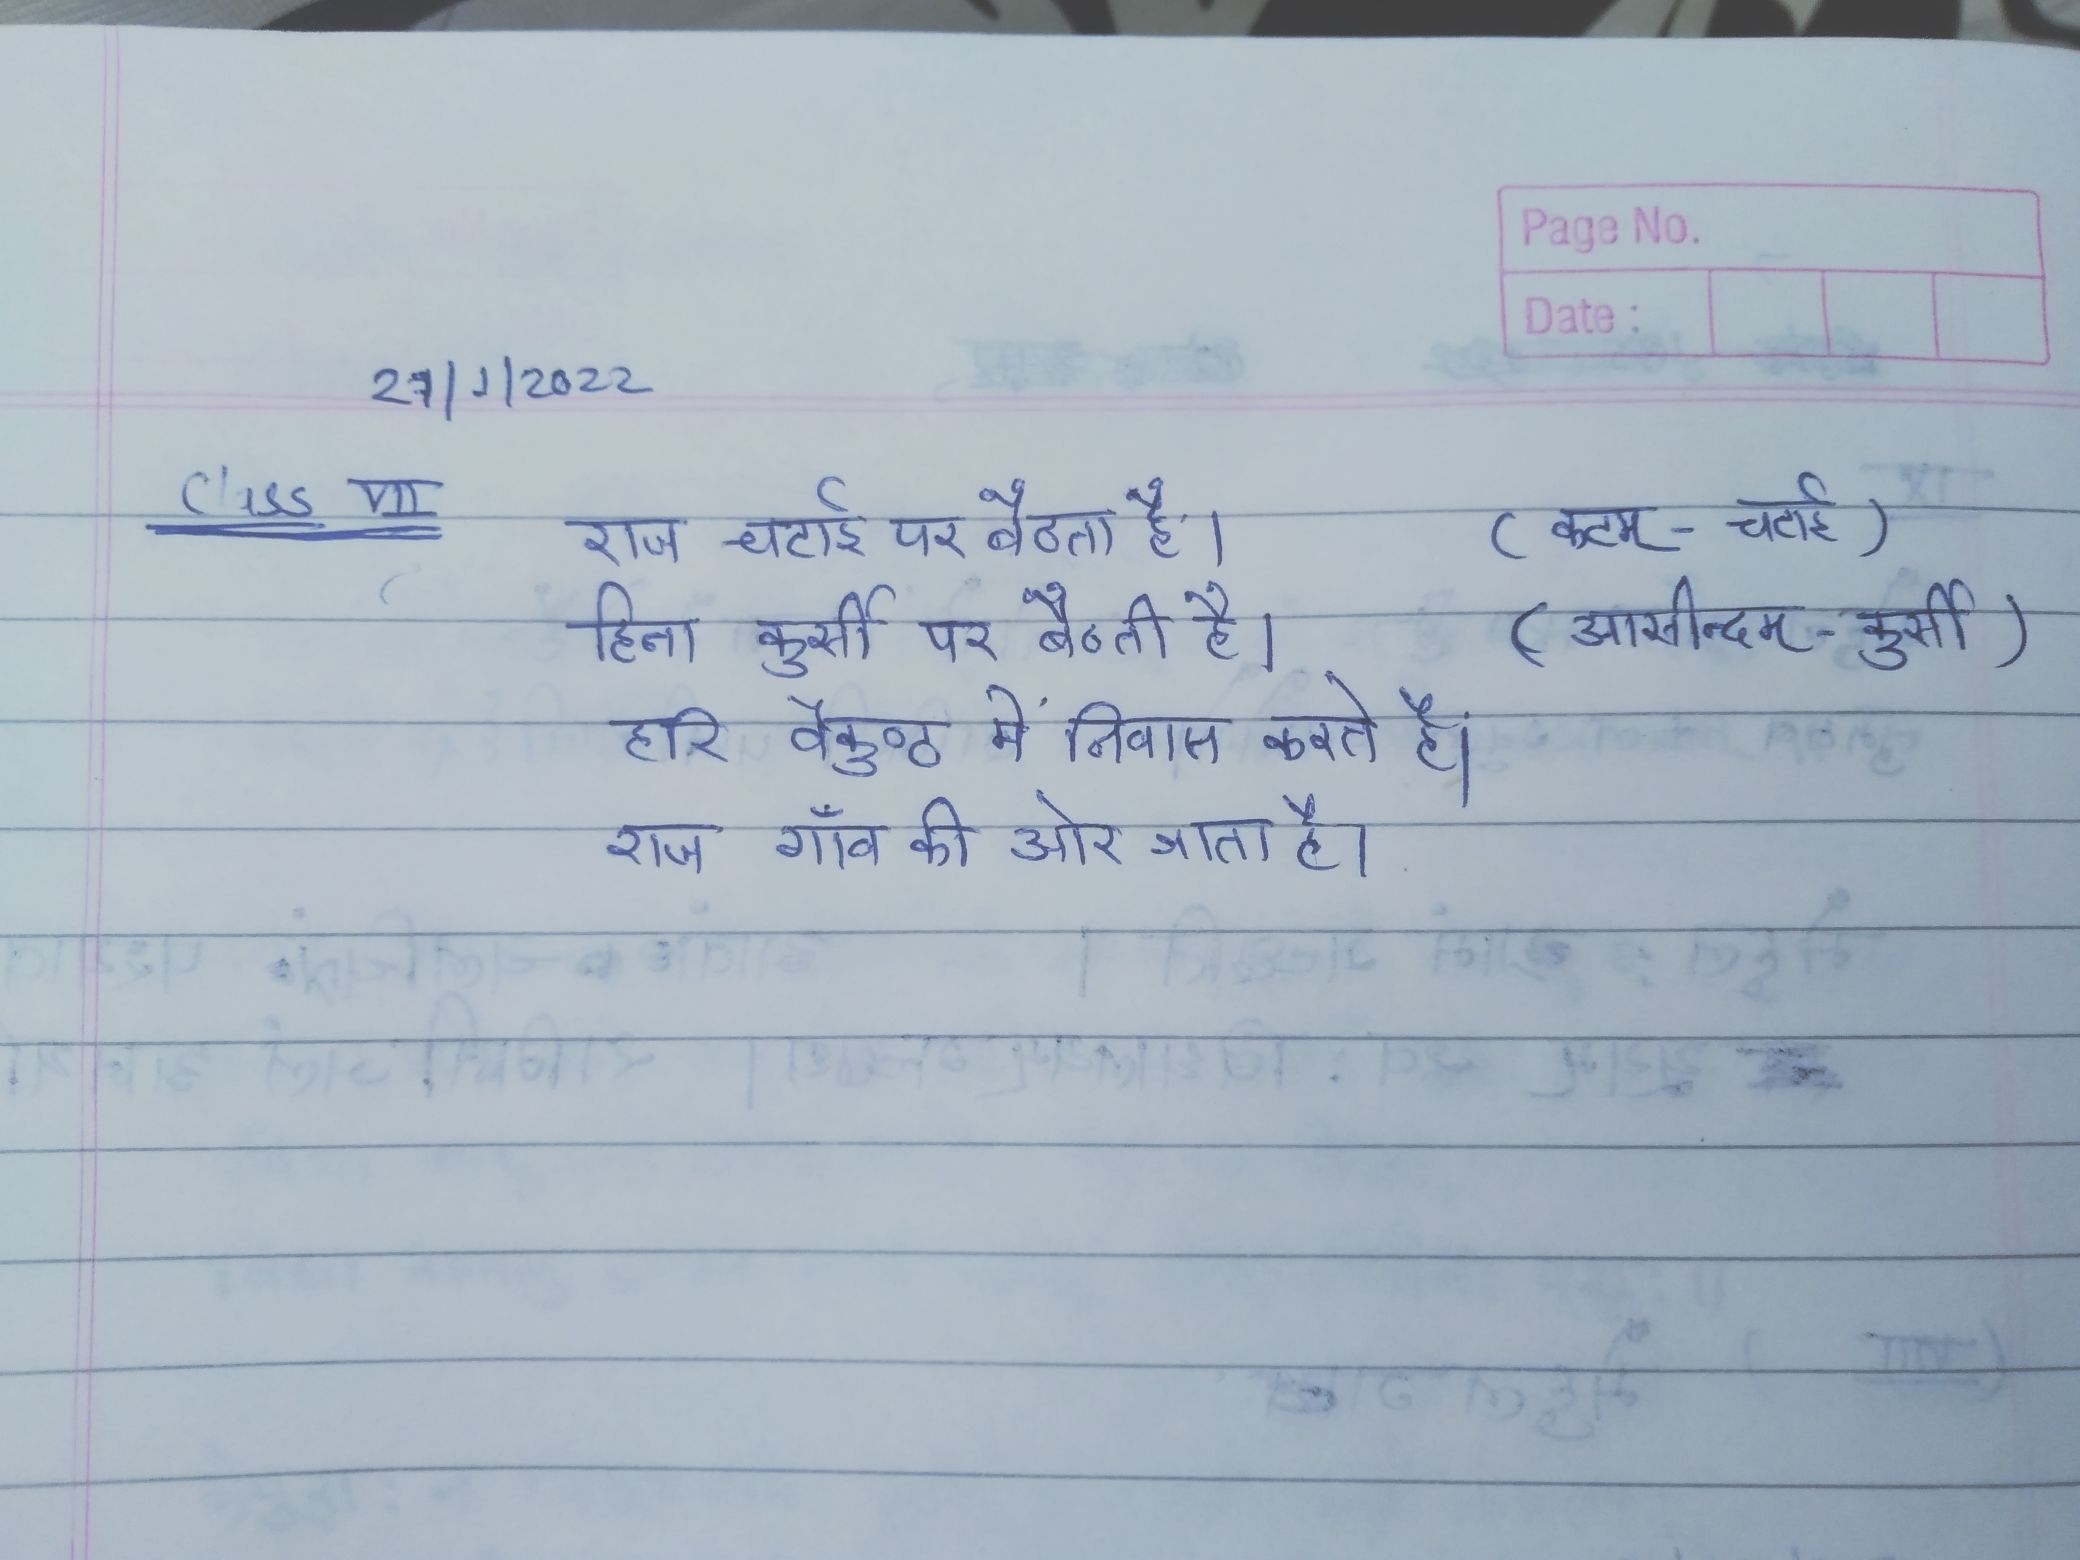 Page No.
Date :
27/1/2022
Class VII राज चटाई पर बैठता है। (कटम् - चटाई)
हिना कुर्सी पर बैठती है। (आसीन्दम् - कुर्सी)
हरि वैकुण्ठ में निवास करते हैं।
राज गाँव की ओर जाता है।